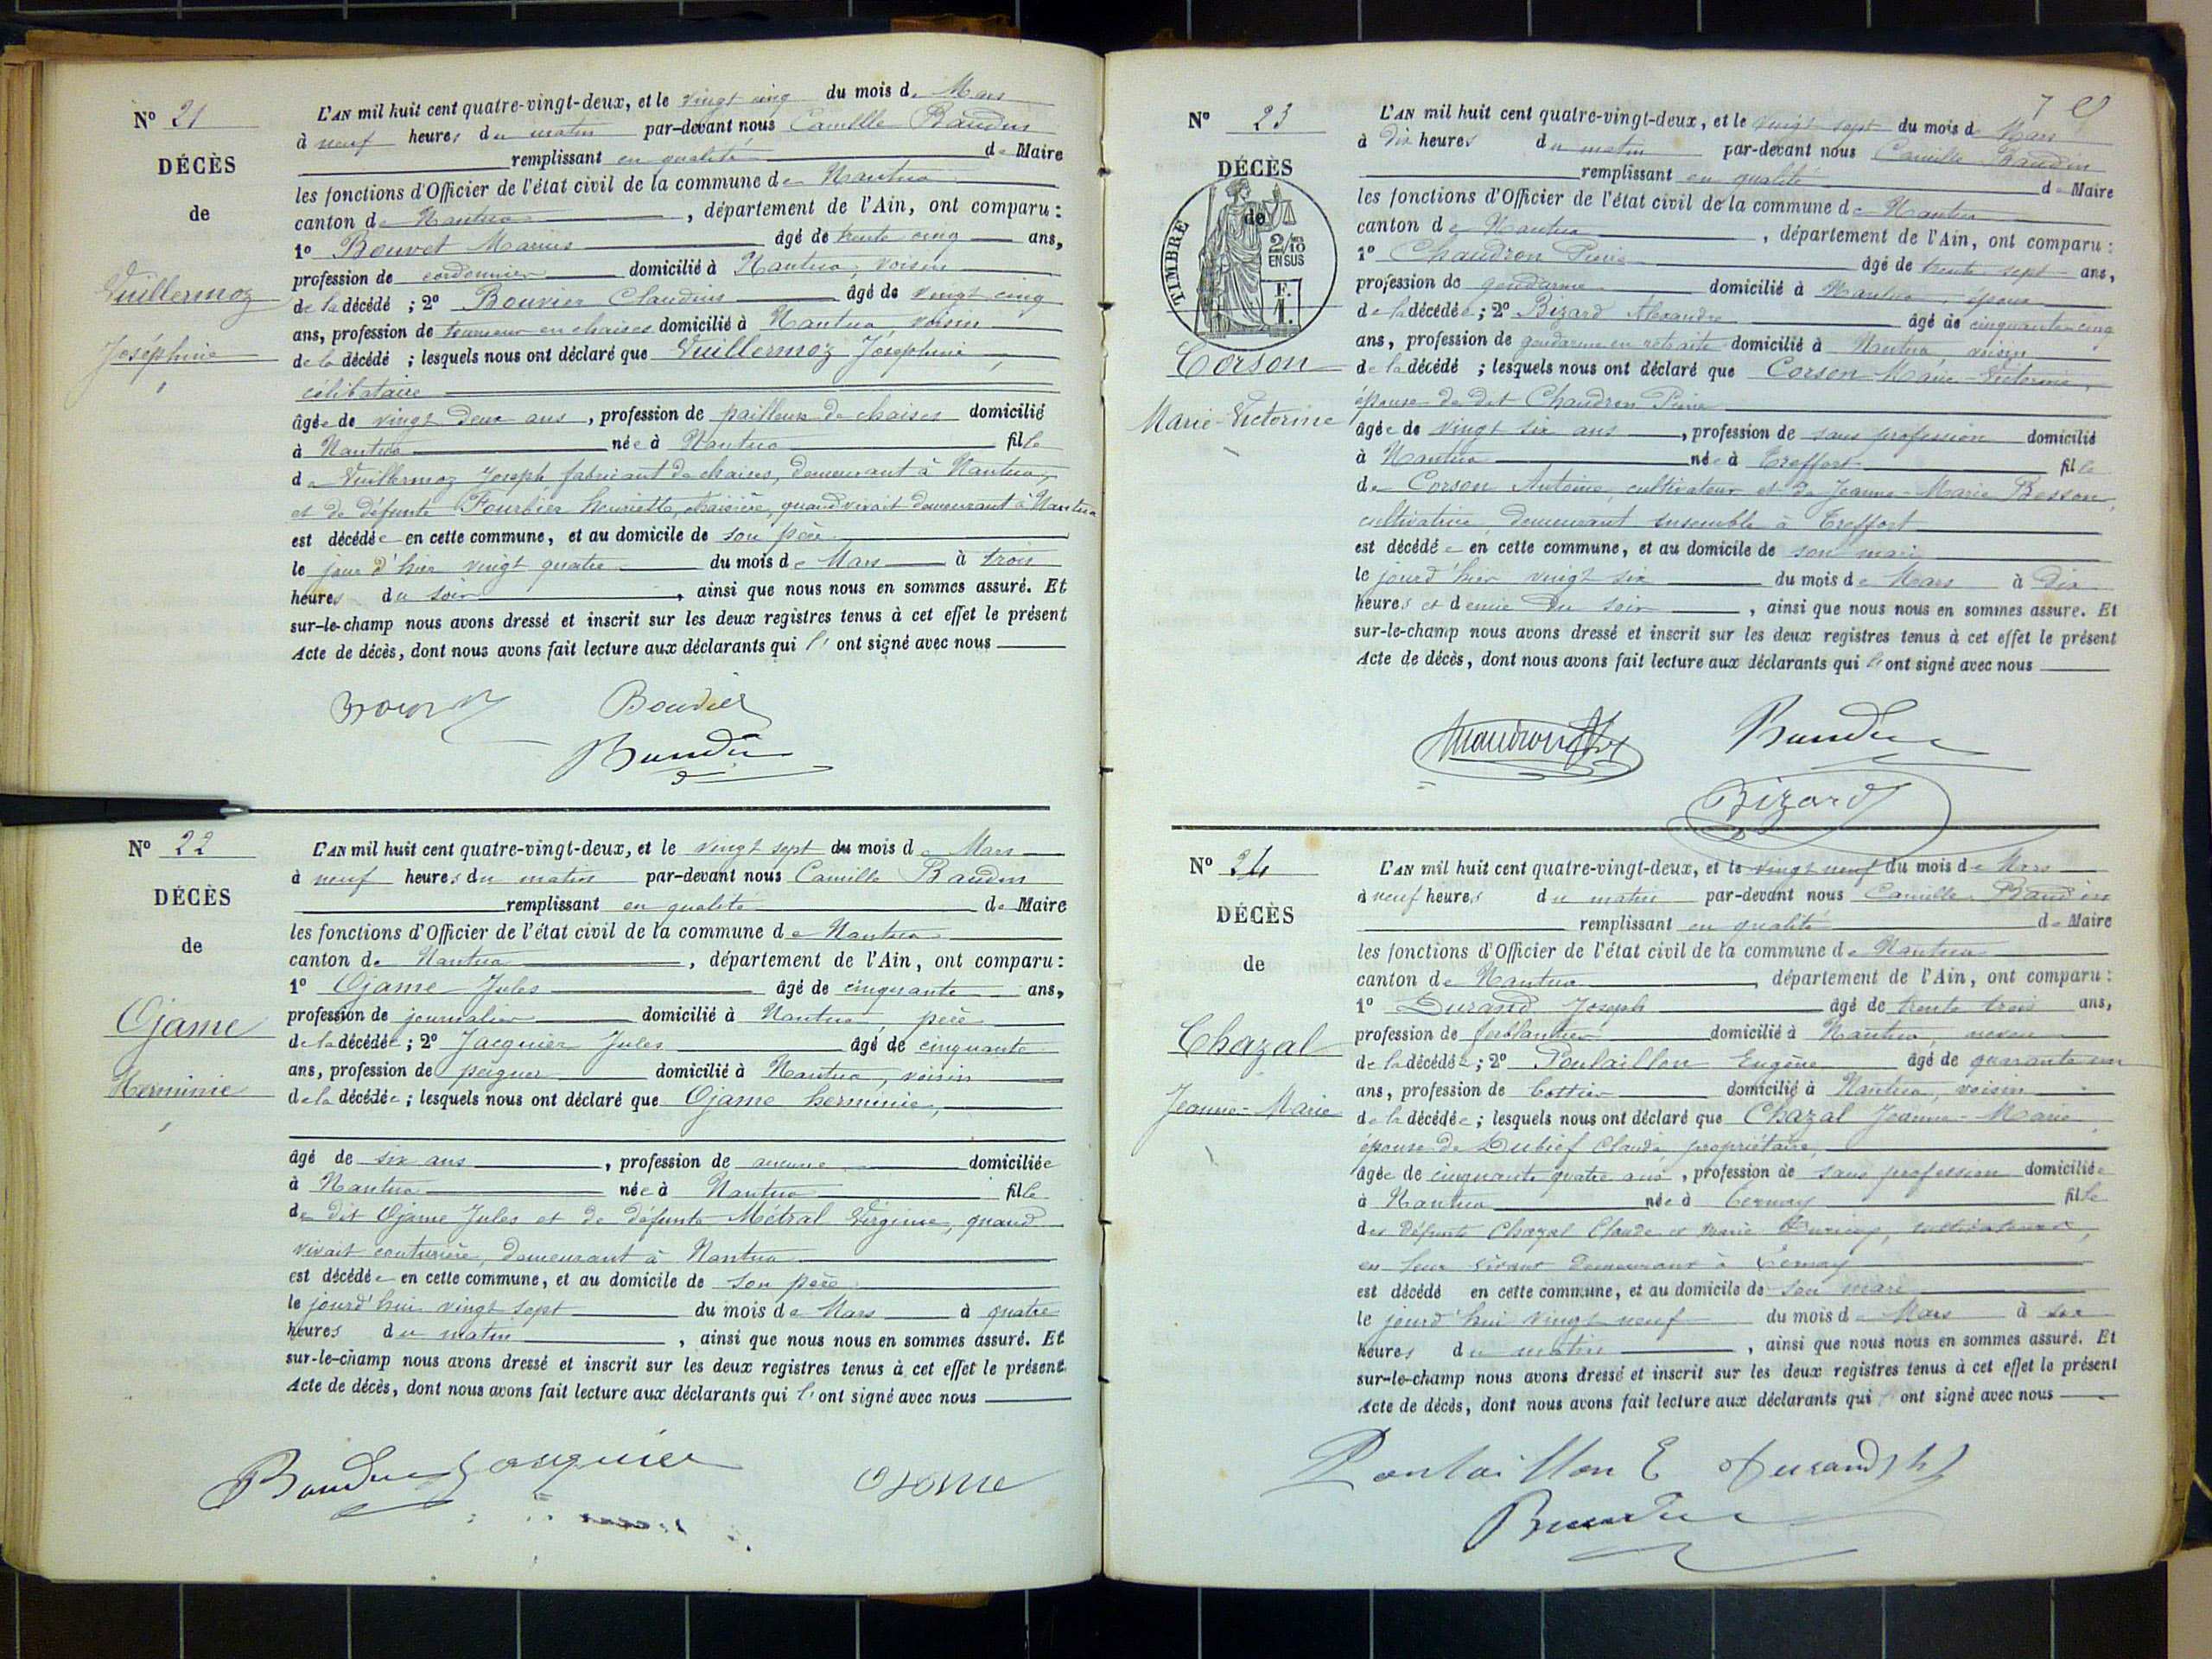 N° 21
DÉCÈS
de
Vuillermoz
Joséphine
L'AN mil huit cent quatre-vingt-deux, et le vingt cinq du mois de Mars
à neuf heures du matin par-devant nous Camille Baudin
remplissant en qualité de Maire
les fonctions d'Officier de l'état civil de la commune de Nantua
canton de Nantua, département de l'Ain, ont comparu :
1° Bouvet Marius âgé de trente cinq ans,
profession de cordonnier domicilié à Nantua, voisin
de la décédé ; 2° Bouvier Claudius âgé de vingt cinq
ans, profession de tourneur en chaises domicilié à Nantua, voisin
de la décédé ; lesquels nous ont déclaré que Vuillermoz Joséphine,
célibataire
âgée de vingt deux ans, profession de pailleuse de chaises domicilié
à Nantua née à Nantua fille
de Vuillermoz Joseph, fabricant de chaises, demeurant à Nantua,
et de défunte Fourbier henriette, chaisière, quand vivait demeurant à Nantua
est décédée en cette commune, et au domicile de son père
le jour d'hier vingt quatre du mois de Mars à trois
heures du soir, ainsi que nous nous en sommes assuré. Et
sur-le-champ nous avons dressé et inscrit sur les deux registres tenus à cet effet le présent
Acte de décès, dont nous avons fait lecture aux déclarants qui l'ont signé avec nous
Bouvier
Baudin
N° 22
DÉCÈS
de
Ojame
Herminie
L'AN mil huit cent quatre-vingt-deux, et le vingt sept du mois de Mars
à neuf heures du matin par-devant nous Camille Baudin
remplissant en qualité de Maire
les fonctions d'Officier de l'état civil de la commune de Nantua
canton de Nantua, département de l'Ain, ont comparu :
1° Ojame Jules âgé de cinquante ans,
profession de journalier domicilié à Nantua, père
de la décédée ; 2° Jacquier Jules âgé de cinquante
ans, profession de peigneur domicilié à Nantua, voisin
de la décédée ; lesquels nous ont déclaré que Ojame herminie,
âgé de six ans, profession de aucune domiciliée
à Nantua née à Nantua fille
de dit Ojame Jules et de défunte Métral Virginie, quand
vivait couturière, demeurant à Nantua
est décédée en cette commune, et au domicile de son père
le jourd'hui vingt sept du mois de Mars à quatre
heures du matin, ainsi que nous nous en sommes assuré. Et
sur-le-champ nous avons dressé et inscrit sur les deux registres tenus à cet effet le présent
Acte de décès, dont nous avons fait lecture aux déclarants qui l'ont signé avec nous
Baudin Jacquier Ojame
7
N° 23
DÉCÈS
de
TIMBRE
2/10 EN SUS
F. 1
Corson
Marie-Victorine
L'AN mil huit cent quatre-vingt-deux, et le vingt sept du mois de Mars
à Dix heures du matin par-devant nous Camille Baudin
remplissant en qualité de Maire
les fonctions d'Officier de l'état civil de la commune de Nantua
canton de Nantua, département de l'Ain, ont comparu :
1° Chaudron Pierre âgé de trente sept ans,
profession de gendarme domicilié à Nantua, époux
de la décédée ; 2° Bizard Alexandre âgé de cinquante cinq
ans, profession de gendarme en retraite domicilié à Nantua, voisin
de la décédé ; lesquels nous ont déclaré que Corson Marie-Victorine,
épouse de dit Chaudron Pierre
âgée de vingt six ans, profession de sans profession domicilié
à Nantua née à Treffort fille
de Corson Antoine, cultivateur et de Jeanne-Marie Besson,
cultivatrice, demeurant ensemble à Treffort
est décédée en cette commune, et au domicile de son mari
le jourd'hier vingt six du mois de Mars à Dix
heures et demie du soir, ainsi que nous nous en sommes assuré. Et
sur-le-champ nous avons dressé et inscrit sur les deux registres tenus à cet effet le présent
Acte de décès, dont nous avons fait lecture aux déclarants qui l'ont signé avec nous
Chaudron Baudin
Bizard
N° 24
DÉCÈS
de
Chazal
Jeanne-Marie
L'AN mil huit cent quatre-vingt-deux, et le vingt neuf du mois de Mars
à neuf heures du matin par-devant nous Camille Baudin
remplissant en qualité de Maire
les fonctions d'Officier de l'état civil de la commune de Nantua
canton de Nantua, département de l'Ain, ont comparu :
1° Durand Joseph âgé de trente trois ans,
profession de ferblantier domicilié à Nantua, neveu
de la décédée ; 2° Poulaillon Eugène âgé de quarante un
ans, profession de bottier domicilié à Nantua, voisin
de la décédée ; lesquels nous ont déclaré que Chazal Jeanne-Marie,
épouse de Dubief Claude, propriétaire,
âgée de cinquante quatre ans, profession de sans profession domiciliée
à Nantua née à fille
des défunts Chazal Claude et Marie cultivateurs,
en leur vivant demeurant à
est décédé en cette commune, et au domicile de son mari
le jourd'hui vingt neuf du mois de Mars à six
heures du matin, ainsi que nous nous en sommes assuré. Et
sur-le-champ nous avons dressé et inscrit sur les deux registres tenus à cet effet le présent
Acte de décès, dont nous avons fait lecture aux déclarants qui l'ont signé avec nous
Poulaillon E Durand
Baudin